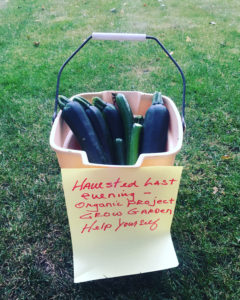 Havested Last
evening –
Organic Project
Grow Garden
Help yourself